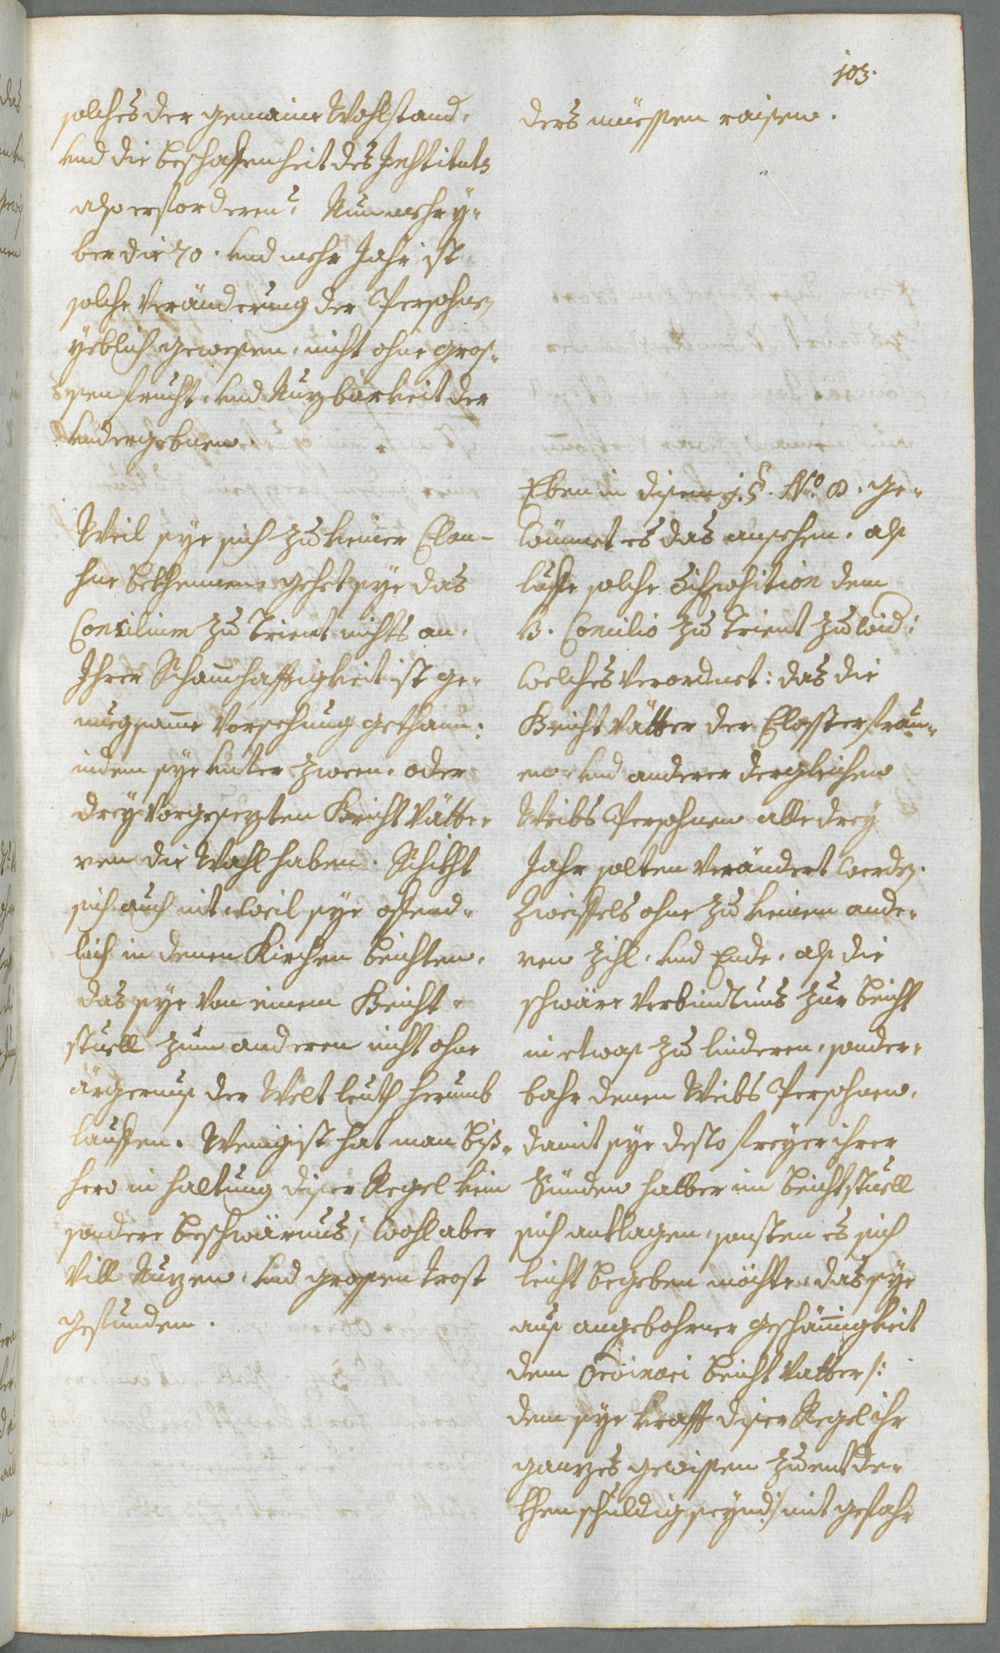 103.
solches der gemaine Wohlstand,
und die beschaffenheit des Instituts
also erforderen? Nunmehr y-
ber die 70. und mehr Jahr ist
solche Veränderung der Persohnen
yeblich gewesen, nicht ohne gros-
sen frucht, und Nuzbarkeit der
undergebnen.
Weil sye sich zu keiner Clau-
sur bekhennen, gehet sye das
Concilium zu Trient nichts an.
Ihrer Schamhafftigkeit ist ge-
nuegsame Vorsehung gethann:
indem sye unter zween, oder
drey Vorgesezten Beicht Vätte-
ren die Wahl haben. Schickht
sich auch nit, weil sye offend-
lich in denen Kirchen beichten,
das sye Von einem Beicht-
stuell zum anderen nicht ohne
ärgernus der Welt leuth herumb
lauffen. Wenigist hat man biß-
hero in haltung diser Regel kein
sondere beschwärnus; wohl aber
Vill Nuzen, und grossen Trost
gefunden.
ders müessen raisen.
Eben in disem j. §. No. 8. ge-
winnet es das ansehen, als
lauffe solche disposition dem
H. Concilio zu Trient zuwid:
welches Verordnet: das die
Beicht Vätter der Closterfrau-
en, und anderer dergleichen
Weibs Persohnen alle drey
Jahr solten Verändert werden.
Zweiffels ohne zu keinem ande-
ren Zihl, und Ende, als die
schwäre Verbindtnus zur beicht
in etwas zu linderen, sonder-
bahr denen Weibs Persohnen,
damit sye desto freyer ihrer
Sünden halber im beichtstuell
sich anklagen, sonsten es sich
leicht begeben möchte, das sye
aus angebohrner geschämigkeit
dem Ordinari beicht Vatter /:
dem sye krafft diser Regel ihr
ganzes gewissen zuentde-
khen schuldig seynd:/ mit gefahr